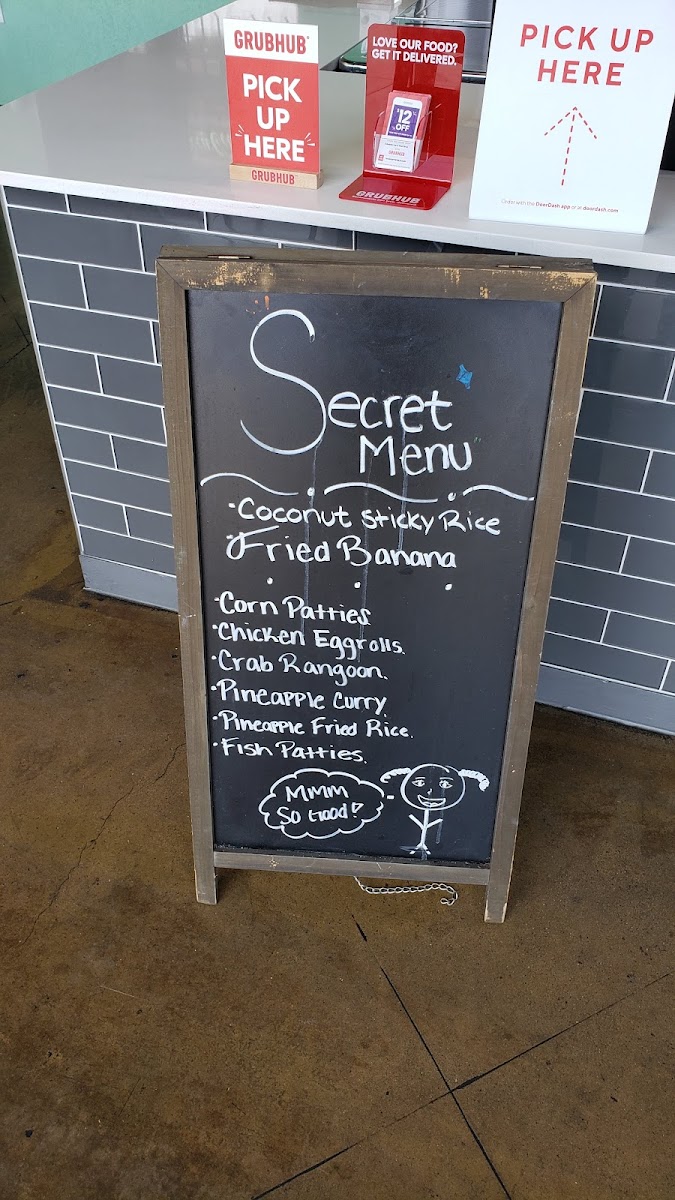 GRUBHUB
PICK
UP
HERE
GRUBHUB
LOVE OUR FOOD?
GET IT DELIVERED.
$12
OFF
GRUBHUB
PICK UP
HERE
Order with the DoorDash app or at doordash.com
Secret
Menu
·Coconut Sticky Rice
·Fried Banana
·Corn Patties
·Chicken Eggrolls.
·Crab Rangoon.
·Pineapple Curry.
·Pineapple Fried Rice.
·Fish Patties.
Mmm
So Good!